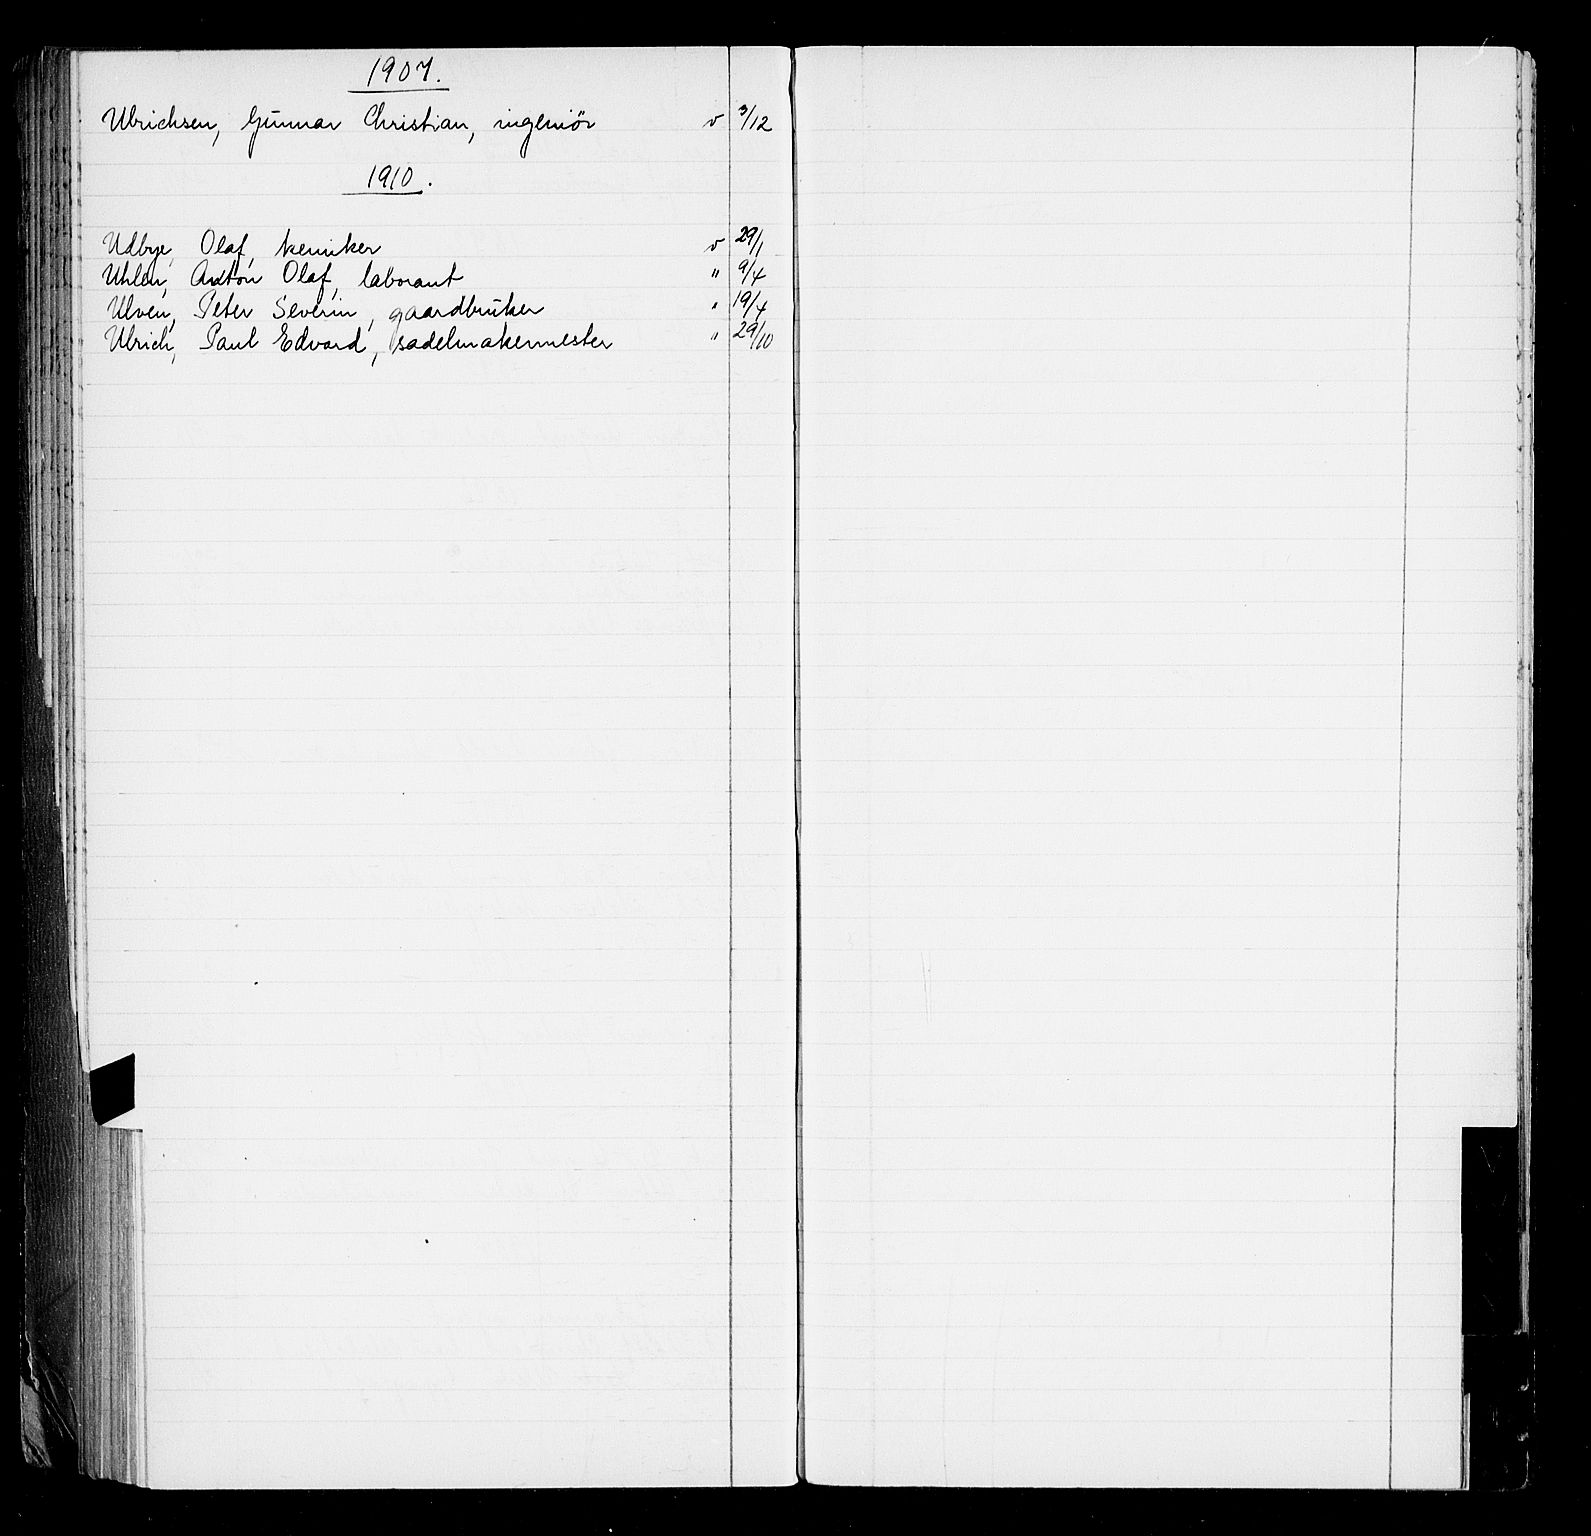 1907.
Ulrichsen, Gunnar Christian, ingeniör v 3/12
1910.
Udbye, Olaf, kemiker v 29/1
Uhlen, Anton Olaf, laborant " 9/4
Ulven, Peter Severin, gaardbruker " 19/4
Ulrich, Paul Edvard, sadelmakermester " 29/10